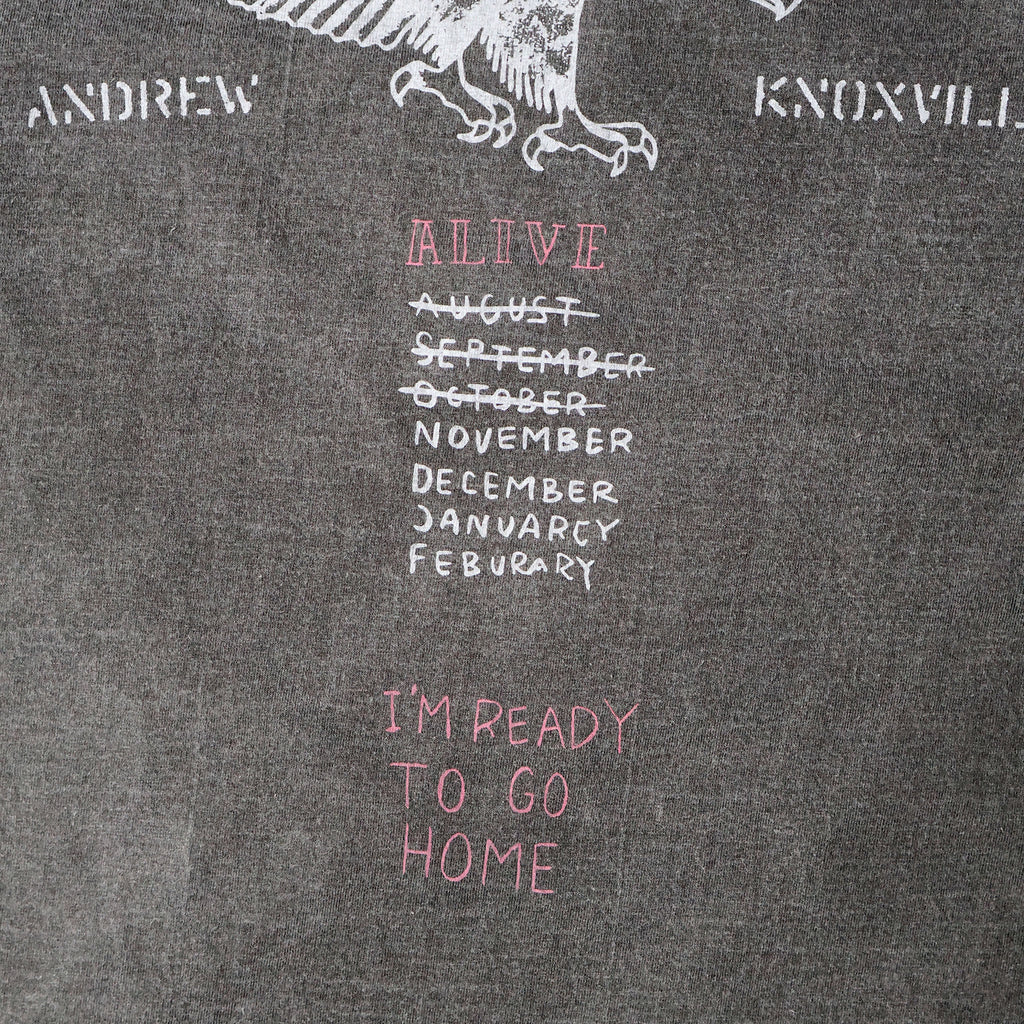 ANDREW KNOXVILL
ALIVE
AUGUST
SEPTEMBER
OCTOBER
NOVEMBER
DECEMBER
JANUARCY
FEBURARY
I'M READY
TO GO
HOME